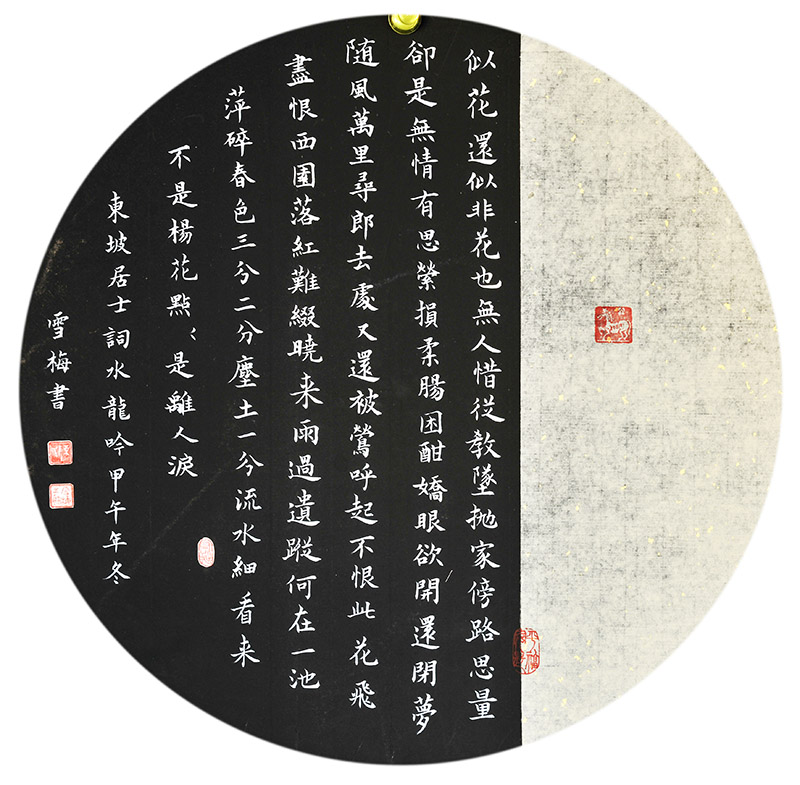 似花還似非花也無人惜從教墜抛家傍路思量
卻是無情有思縈損柔腸困酣嬌眼欲開還閉夢
随風萬里尋郎去處又還被鶯呼起不恨此花飛
盡恨西園落紅難綴曉来雨過遺蹤何在一池
萍碎春色三分二分塵土一分流水細看来
不是楊花點〻是離人淚
東坡居士詞水龍吟甲午年冬
雪梅書